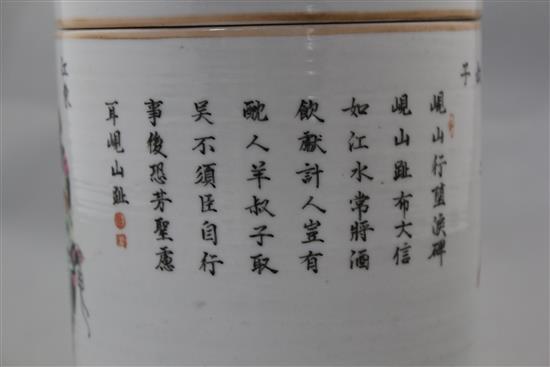 峴山行墮淚碑
峴山趾布大信
如江水常將酒
飲獻計人豈有
酖人羊叔子取
吳不須臣自行
事後恐芳聖慮
耳峴山趾
子